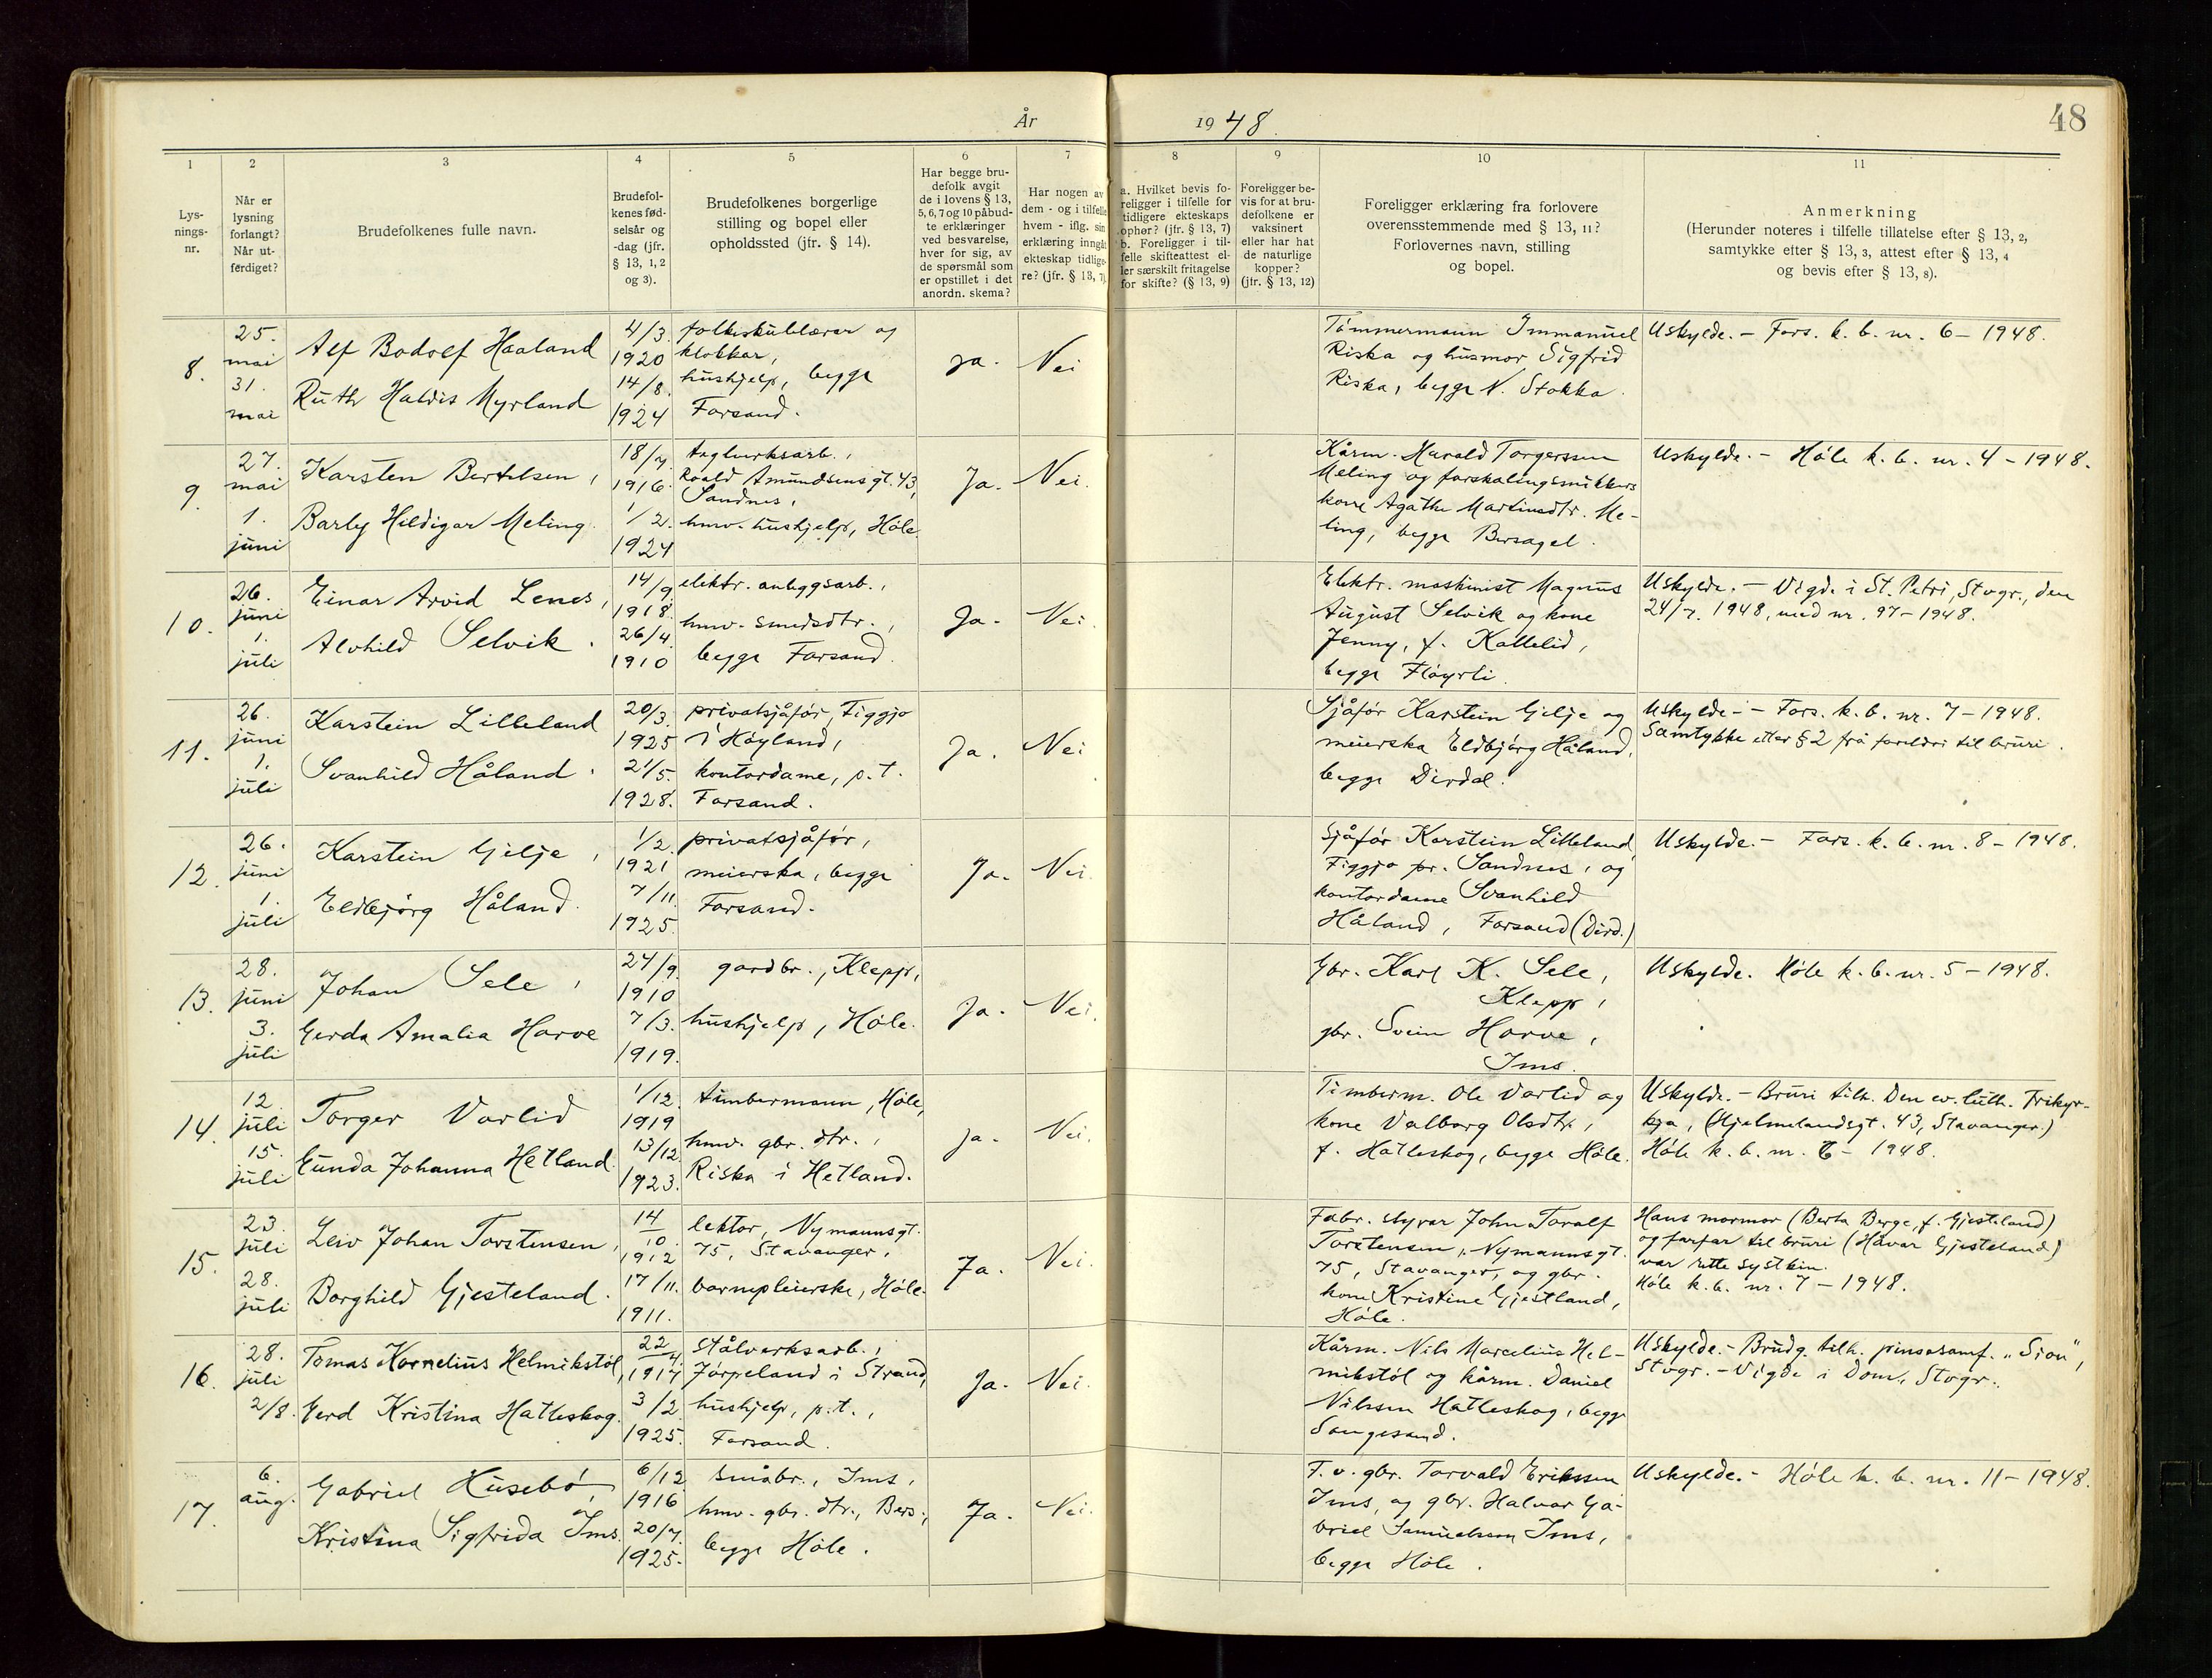 År 1948.
48
1
Lys-
nings-
nr.
2
Når er
lysning
forlangt?
Når ut-
ferdiget?
3
Brudefolkenes fulle navn.
4
Brudefol-
kenes fød-
selsår og
-dag (jfr.
§ 13, 1, 2
og 3).
5
Brudefolkenes borgerlige
stilling og bopel eller
opholdssted (jfr. § 14).
6
Har begge bru-
defolk avgit
de i lovens § 13,
5, 6, 7 og 10 påbud-
te erklæringer
ved besvarelse,
hver for sig, av
de spørsmål som
er opstillet i det
anordn. skema?
7
Har nogen av
dem - og i tilfelle
hvem - iflg. sin
erklæring inngått
ekteskap tidlige-
re? (jfr. § 13, 7)
8
a. Hvilket bevis fo-
religger i tilfelle for
tidligere ekteskaps
ophør? (jfr. § 13, 7)
b. Foreligger i til-
felle skifteattest el-
ler særskilt fritagelse
for skifte? (§ 13, 9)
9
Foreligger be-
vis for at bru-
defolkene er
vaksinert
eller har hat
de naturlige
kopper?
(jfr. § 13, 12)
10
Foreligger erklæring fra forlovere
overensstemmende med § 13, 11?
Forlovernes navn, stilling
og bopel.
11
Anmerkning
(Herunder noteres i tilfelle tillatelse efter § 13, 2,
samtykke efter § 13, 3, attest efter § 13, 4
og bevis efter § 13, 8).
8.
25.
mai
31.
mai
Alf Bodolf Haaland
Ruth Haldis Myrland
4/3
1920
14/8.
1924
folkeskulelærar og
klokkar,
hushjelp, begge
Forsand.
Ja.
Nei
Tømmermann Immanuel
Riska og husmor Sigfrid
Riska, begge N. Stokka.
Uskylde. - Fors. k. b. nr. 6 - 1948.
9.
27.
mai
1.
juni
Karsten Bertelsen,
Barly Hildigar Meling.
18/7.
1916.
1/2.
1924
teglverksarb.,
Roald Amundsensgt. 43,
Sandnes,
hmv. hushjelp, Høle.
Ja.
Nei.
Kårm. Harald Torgersen
Meling og forskalingsnikkers
kone Agathe Martinsdtr. Me-
ling, begge Bersagel.
Uskylde. - Høle k. b. nr. 4 - 1948.
10.
26.
juni
1.
juli
Einar Arvid Lenes,
Alvhild Selvik.
14/9
1918.
26/4.
1910
elektr. anleggsarb.,
hmv. smedsdtr.,
begge Forsand.
Ja.
Nei.
Elektr. maskinist Magnus
August Selvik og kone
Jenny, f. Kallelid,
begge Fløyrli.
Uskylde. - Vigde i St. Petri, Stvgr., den
24/7. 1948, med nr. 97 - 1948.
11.
26.
juni
1.
juli
Karstein Lilleland
Svanhild Håland.
20/3.
1925
21/5.
1928.
privatsjåfør, Figgjo
i Høyland,
kontordame, p.t.
Forsand.
Ja.
Nei
Sjåfør Karstein Gilje og
meierska Eldbjørg Håland,
begge Dirdal.
Uskylde. - Fors. k. b. nr. 7 - 1948.
Samtykke etter § 2 frå foreldri til bruri.
12.
26.
juni
1.
juli
Karstein Gilje,
Eldbjørg Håland.
1/2.
1921
7/11.
1925.
privatsjåfør,
meierska, begge
Forsand.
Ja.
Nei.
Sjåfør Karstein Lilleland
Figgjo pr. Sandnes, og
kontordame Svanhild
Håland, Forsand (Dird.)
Uskylde. - Fors. k. b. nr. 8 - 1948.
13.
28.
juni
3.
juli
Johan Sele,
Gerda Amalia Horve
24/9.
1910
7/3.
1919.
gardbr., Klepp,
hushjelp, Høle.
Ja.
Nei.
Gbr. Karl K. Sele,
Klepp,
gbr. Svein Horve,
Ims.
Uskylde. Høle k. b. nr. 5 - 1948.
14.
12.
juli
15.
juli
Torger Varlid
Gunda Johanna Hetland.
1/12.
1919
13/12
1923.
timbermann, Høle,
hmv. gbr. dtr.,
Riska i Hetland.
Ja.
Nei.
Timberm. Ole Varlid og
kone Valborg Olsdtr.,
f. Hatleskog, begge Høle.
Uskylde. - Bruri tilh. Den ev. luth. Frikyr-
kja, (Hjelmelandsgt. 43, Stavanger.)
Høle k. b. nr. 6 - 1948.
15.
23.
juli
28.
juli
Leiv Johan Torstensen,
Borghild Gjesteland.
14
10.
1912
17/11.
1911.
lektor, Nymannsgt.
75, Stavanger,
barnepleierske, Høle.
Ja.
Nei.
Fabr. styrar John Toralf
Torstensen, Nymannsgt.
75, Stavanger, og gbr.
kone Kristine Gjestland,
Høle.
Hans mormor (Berta Berge, f. Gjesteland)
og farfar til bruri (Håvar Gjesteland)
var rette systkin.
Høle k. b. nr. 7 - 1948.
16.
28.
juli
2/8.
Tomas Kornelius Helmikstøl,
Gerd Kristina Hatleskog.
22
4.
1917
3/2.
1925.
stålverksarb.,
Jørpeland i Strand,
hushjelp, p.t.,
Forsand.
Ja.
Nei.
Kårm. Nils Marcelius Hel-
mikstøl og kårm. Daniel
Nilssen Hatleskog, begge
Songesand.
Uskylde. - Brudg. tilh. pinsesamf. „Sion",
Stvgr. - Vigde i Dom., Stvgr.
17.
6.
aug.
Gabriel Husebø,
Kristina Sigfrida Ims.
6/12
1916
20/7.
1925.
småbr., Ims,
hmv. gbr. dtr., Bers.,
begge Høle.
Ja.
Nei.
F. v. gbr. Torvald Eriksson
Ims, og gbr. Halvar Ga-
briel Samuelsson Ims,
begge Høle.
Uskylde. - Høle k. b. nr. 11 - 1948.